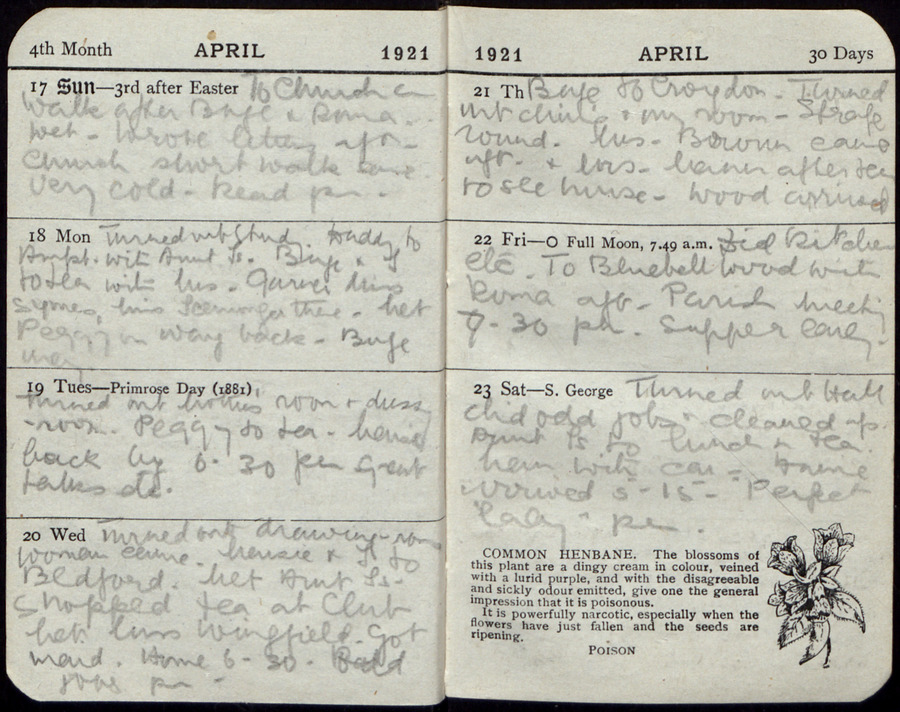 4th Month APRIL 1921
17 Sun—3rd after Easter To Church
walk after Buje & Roma.
wet - wrote letters aft -
Church short walk
very cold - Read pm.
18 Mon Turned out Stud. Daddy to
Ampt. with Aunt Is. Buje &
to tea with Mrs.
Symes, Miss there - Met
Peggy on way back - Buje
19 Tues—Primrose Day (1881)
Turned out Mothers room + dress
-room. Peggy to tea -
back by 6-30 pm Great
talks etc.
20 Wed Turned out drawing-room
woman came. & to
Bedford. Met Aunt Is -
Shopped tea at Club
Met Miss Wingfield. Got
maid. Home 6-30. Odd
jobs pm -
1921 APRIL 30 Days
21 Th Buje to Croydon. Turned
out & my room - Strafe
round. Mrs - Brown came
aft. & Mrs. after tea
to see - Wood arrived
22 Fri—O Full Moon, 7.49 a.m. Did Kitchen
etc. To Bluebell wood with
Roma aft - Parish meeting
7-30 pm. Supper early -
23 Sat—S. George Turned out Hall
did odd jobs - cleaned up.
Aunt Is to lunch & tea.
with car -
arrived 5-15 - "Perfect
lady" pm.
COMMON HENBANE. The blossoms of
this plant are a dingy cream in colour, veined
with a lurid purple, and with the disagreeable
and sickly odour emitted, give one the general
impression that it is poisonous.
It is powerfully narcotic, especially when the
flowers have just fallen and the seeds are
ripening.
POISON